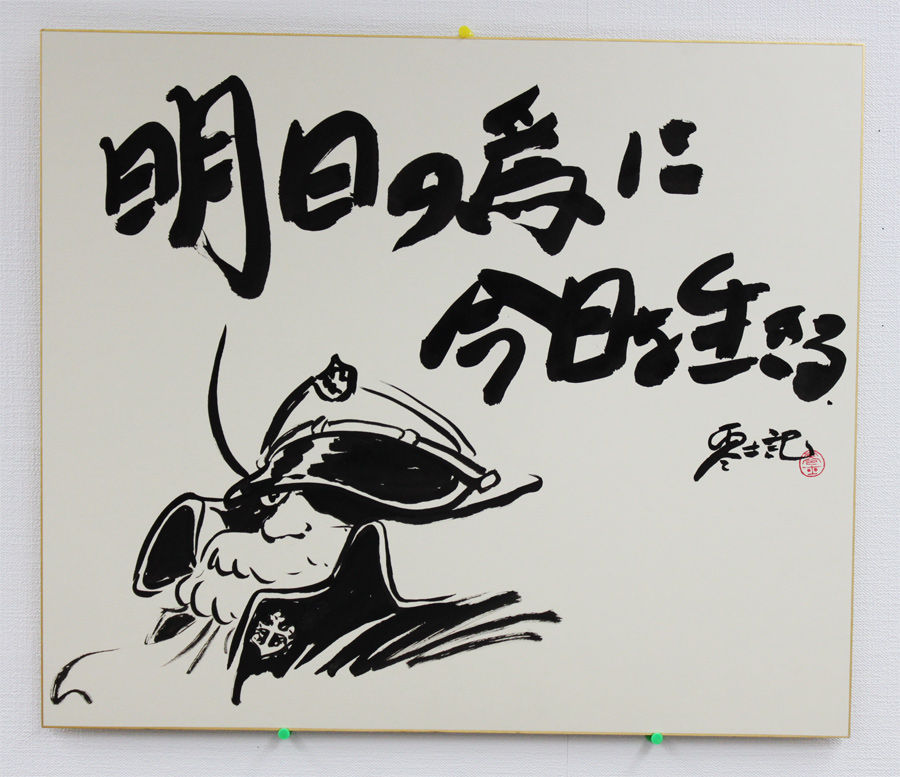 明日の為に
今日を生きる
零士記